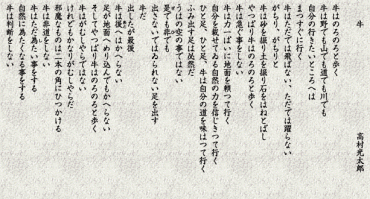 牛
高村光太郎
牛はのろのろと歩く
牛は野でも山でも道でも川でも
自分の行きたいところへは
まつすぐに行く
牛はただでは飛ばない、ただでは躍らない
がちり、がちりと
牛は砂を掘り土を掘り石をはねとばし
やつぱり牛はのろのろと歩く
牛は急ぐ事をしない
牛は力一ぱいに地面を頼つて行く
自分を載せてゐる自然の力を信じきつて行く
ひと足、ひと足、牛は自分の道を味はつて行く
ふみ出す足は必然だ
うはの空の事でない
是でも非でも
出さないではゐられない足を出す
牛だ
出したが最後
牛は後へはかへらない
足が地面へめり込んでもかへらない
そしてやつぱり牛はのろのろと歩く
牛はがむしやらではない
けれどもかなりがむしやらだ
邪魔なものは二本の角にひつかける
牛は非道をしない
牛はただ為たい事をする
自然に為たくなる事をする
牛は判断をしない